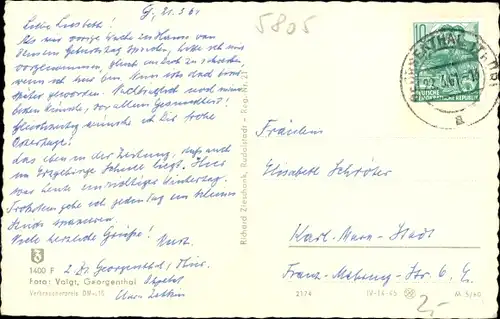 G., 21.3.61
5805
Liebe Liesbeth!
Als wir vorige Woche zu Hause von
Deinem Geburtstag sprachen, hatte ich mir
vorgenommen, gleich an Dich zu schreiben,
wenn ich hier bin. Nun ist es doch
später geworden. Nachträglich noch meine
besten Wünsche, vor allem Gesundheit!
Gleichzeitig wünsche ich Dir frohe
Ostertage!
Las eben in der Zeitung, daß auch
im Erzgebirge Schnee liegt. Hier
war heute ein richtiger Wintertag.
Trotzdem gehe ich jeden Tag ein kleines
Stück spazieren.
Viele herzliche Grüße!
Kurt.
Z. Zt. Georgenthal/Thür.
Clara Zetkin
Fräulein
Elisabeth Schröter
Karl-Marx-Stadt
Franz-Mehring-Str. 6
10
DEUTSCHE
DEMOKRATISCHE REPUBLIK
GEORGENTHAL (THÜR)
a
Richard Zieschank, Rudolstadt - Reg.-Nr. 21
1400 F
Foto: Voigt, Georgenthal
Verbraucherpreis DM -,15
2174
IV-14-45
M 5/60
2,-